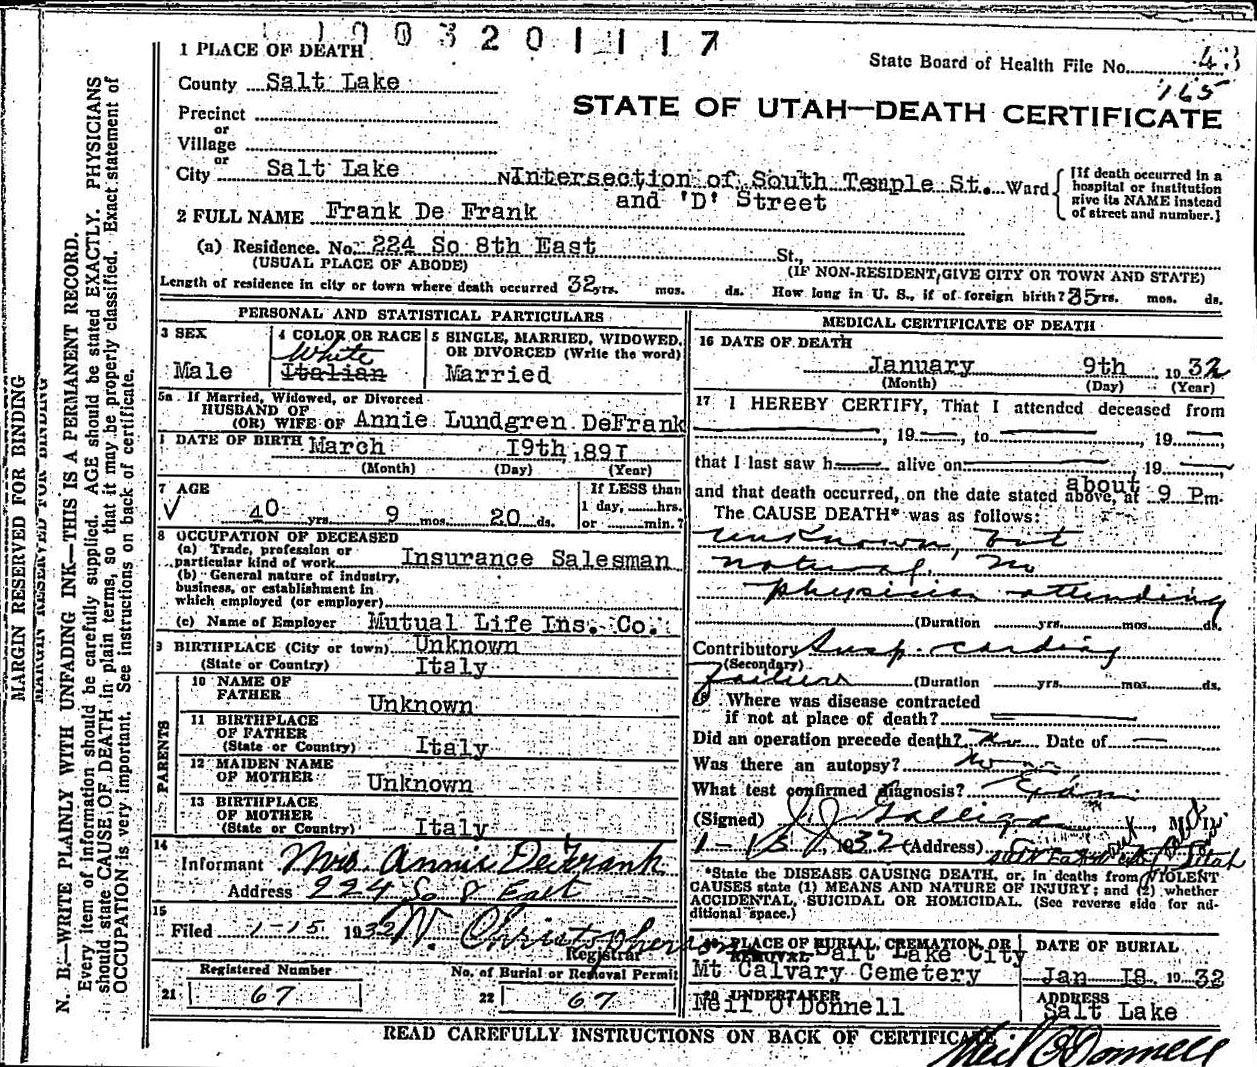 1003201117
1 PLACE OF DEATH
State Board of Health File No. 43
165
County Salt Lake
STATE OF UTAH—DEATH CERTIFICATE
Precinct
or
Village
or
City Salt Lake
N Intersection of South Temple St. Ward
and 'D' Street
[If death occurred in a
hospital or institution
give its NAME instead
of street and number.]
2 FULL NAME Frank De Frank
(a) Residence. No. 224 So 8th East St.,
(USUAL PLACE OF ABODE)
(IF NON-RESIDENT, GIVE CITY OR TOWN AND STATE)
Length of residence in city or town where death occurred 32 yrs. mos. ds. How long in U. S., if of foreign birth? 35 yrs. mos. ds.
PERSONAL AND STATISTICAL PARTICULARS
3 SEX
Male
4 COLOR OR RACE
White
Italian
5 SINGLE, MARRIED, WIDOWED,
OR DIVORCED (Write the word)
Married
5a If Married, Widowed, or Divorced
HUSBAND OF
(OR) WIFE OF Annie Lundgren DeFrank
DATE OF BIRTH March 19th, 1891
(Month) (Day) (Year)
7 AGE
40 yrs. 9 mos. 20 ds.
If LESS than
1 day, hrs.
or min.?
8 OCCUPATION OF DECEASED
(a) Trade, profession or
particular kind of work Insurance Salesman
(b) General nature of industry,
business, or establishment in
which employed (or employer)
(c) Name of Employer Mutual Life Ins. Co.
9 BIRTHPLACE (City or town) Unknown
(State or Country) Italy
PARENTS
10 NAME OF
FATHER
Unknown
11 BIRTHPLACE
OF FATHER
(State or Country) Italy
12 MAIDEN NAME
OF MOTHER Unknown
13 BIRTHPLACE
OF MOTHER
(State or Country) Italy
14
Informant Mrs. Annie DeFrank
Address 224 So 8 East
15
Filed 1-15 1932 W. Christopherson
Registrar
Registered Number
21 67
No. of Burial or Removal Permit
22 67
MEDICAL CERTIFICATE OF DEATH
16 DATE OF DEATH
January 9th 1932
(Month) (Day) (Year)
17 I HEREBY CERTIFY, That I attended deceased from
, 19 , to , 19 ,
that I last saw h alive on , 19
about
and that death occurred, on the date stated above, at 9 Pm.
The CAUSE DEATH* was as follows:
unknown, but
natural. No
physician attending
(Duration yrs. mos. ds.
Contributory Susp. cardiac
(Secondary)
failure (Duration yrs. mos. ds.
18 Where was disease contracted
if not at place of death?
Did an operation precede death? No Date of
Was there an autopsy? No
What test confirmed diagnosis?
(Signed) J J Galligan, M. D.
1-15 1932 (Address)
Salt Lake City Utah
*State the DISEASE CAUSING DEATH, or, in deaths from VIOLENT
CAUSES state (1) MEANS AND NATURE OF INJURY; and (2) whether
ACCIDENTAL, SUICIDAL OR HOMICIDAL. (See reverse side for ad-
ditional space.)
19 PLACE OF BURIAL, CREMATION, OR
REMOVAL Salt Lake City
Mt Calvary Cemetery
DATE OF BURIAL
Jan 18, 1932
20 UNDERTAKER
Neil O'Donnell
ADDRESS
Salt Lake
READ CAREFULLY INSTRUCTIONS ON BACK OF CERTIFICATE
Neil O'Donnell
MARGIN RESERVED FOR BINDING
MARGIN RESERVED FOR BINDING
N. B.—WRITE PLAINLY WITH UNFADING INK—THIS IS A PERMANENT RECORD.
Every item of information should be carefully supplied. AGE should be stated EXACTLY. PHYSICIANS
should state CAUSE OF DEATH in plain terms, so that it may be properly classified. Exact statement of
OCCUPATION is very important. See instructions on back of certificate.